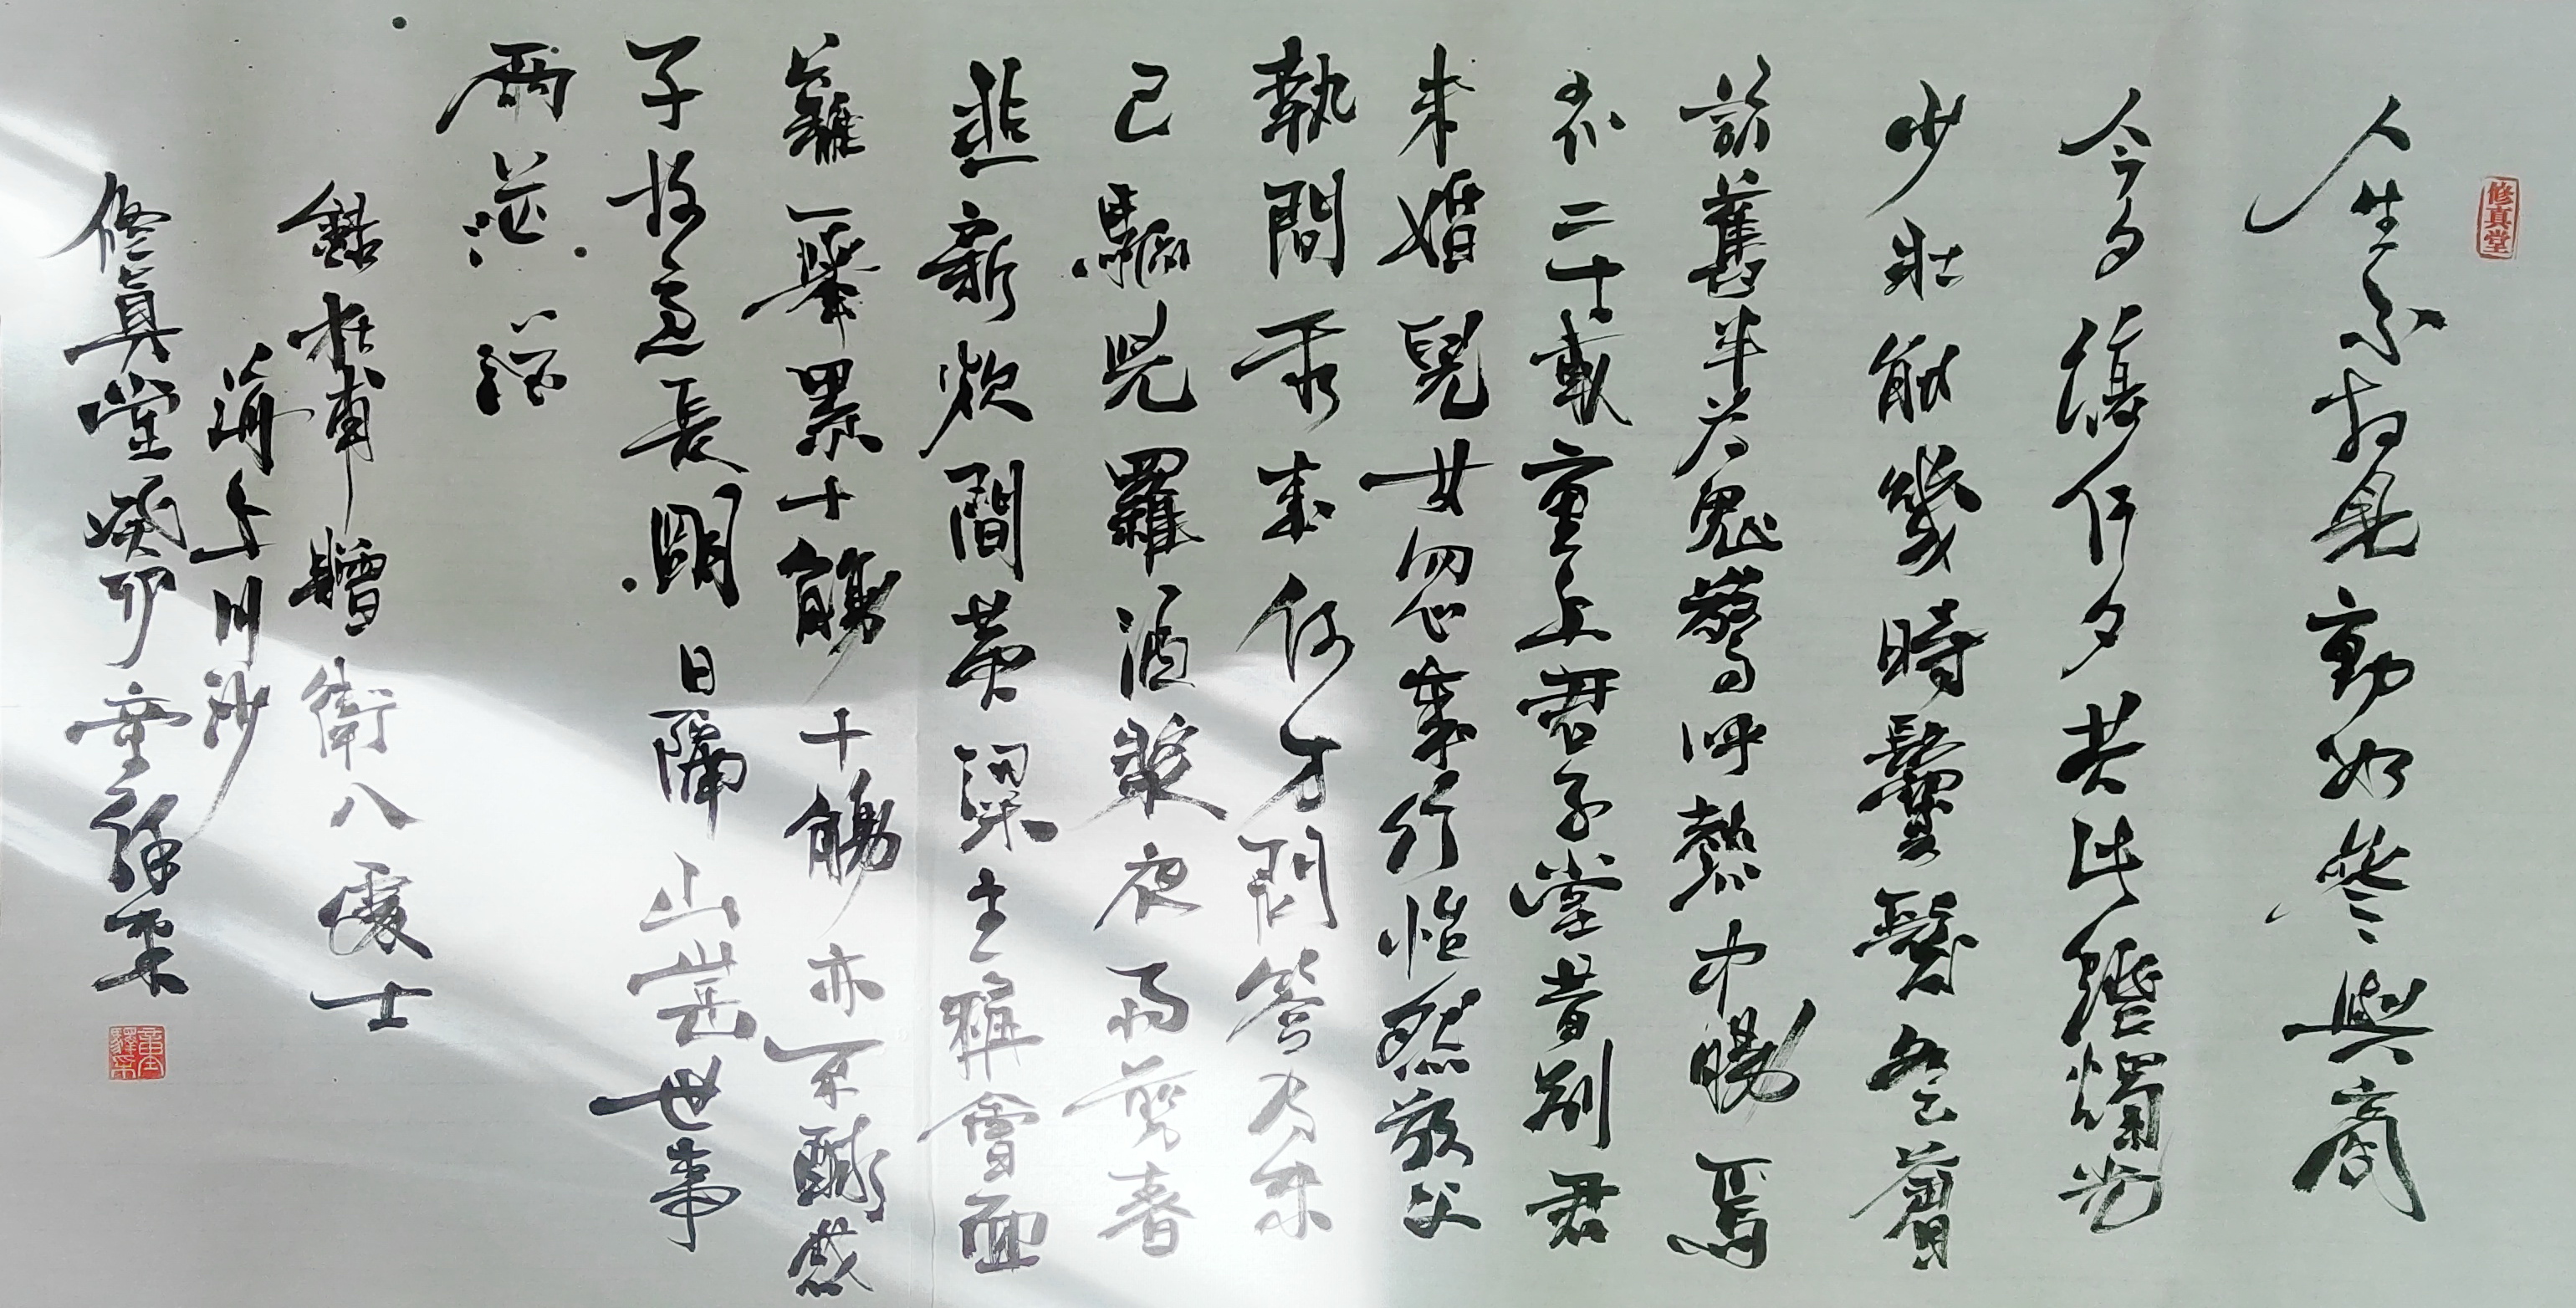 修真堂
人生不相見動如參與商
今夕復何夕共此燈燭光
少壯能幾時鬢髮各已蒼
訪舊半为鬼驚呼熱中腸焉
知二十載重上君子堂昔別君
未婚兒女忽成行怡然敬父
執問我來何方問答乃未
已驅兒羅酒漿夜雨剪春
韭新炊間黃粱主稱會面
難一舉累十觴十觴亦不醉感
子故意長明日隔山岳世事
兩茫茫
錄杜甫贈衛八處士
滬上川沙
修真堂癸卯童采